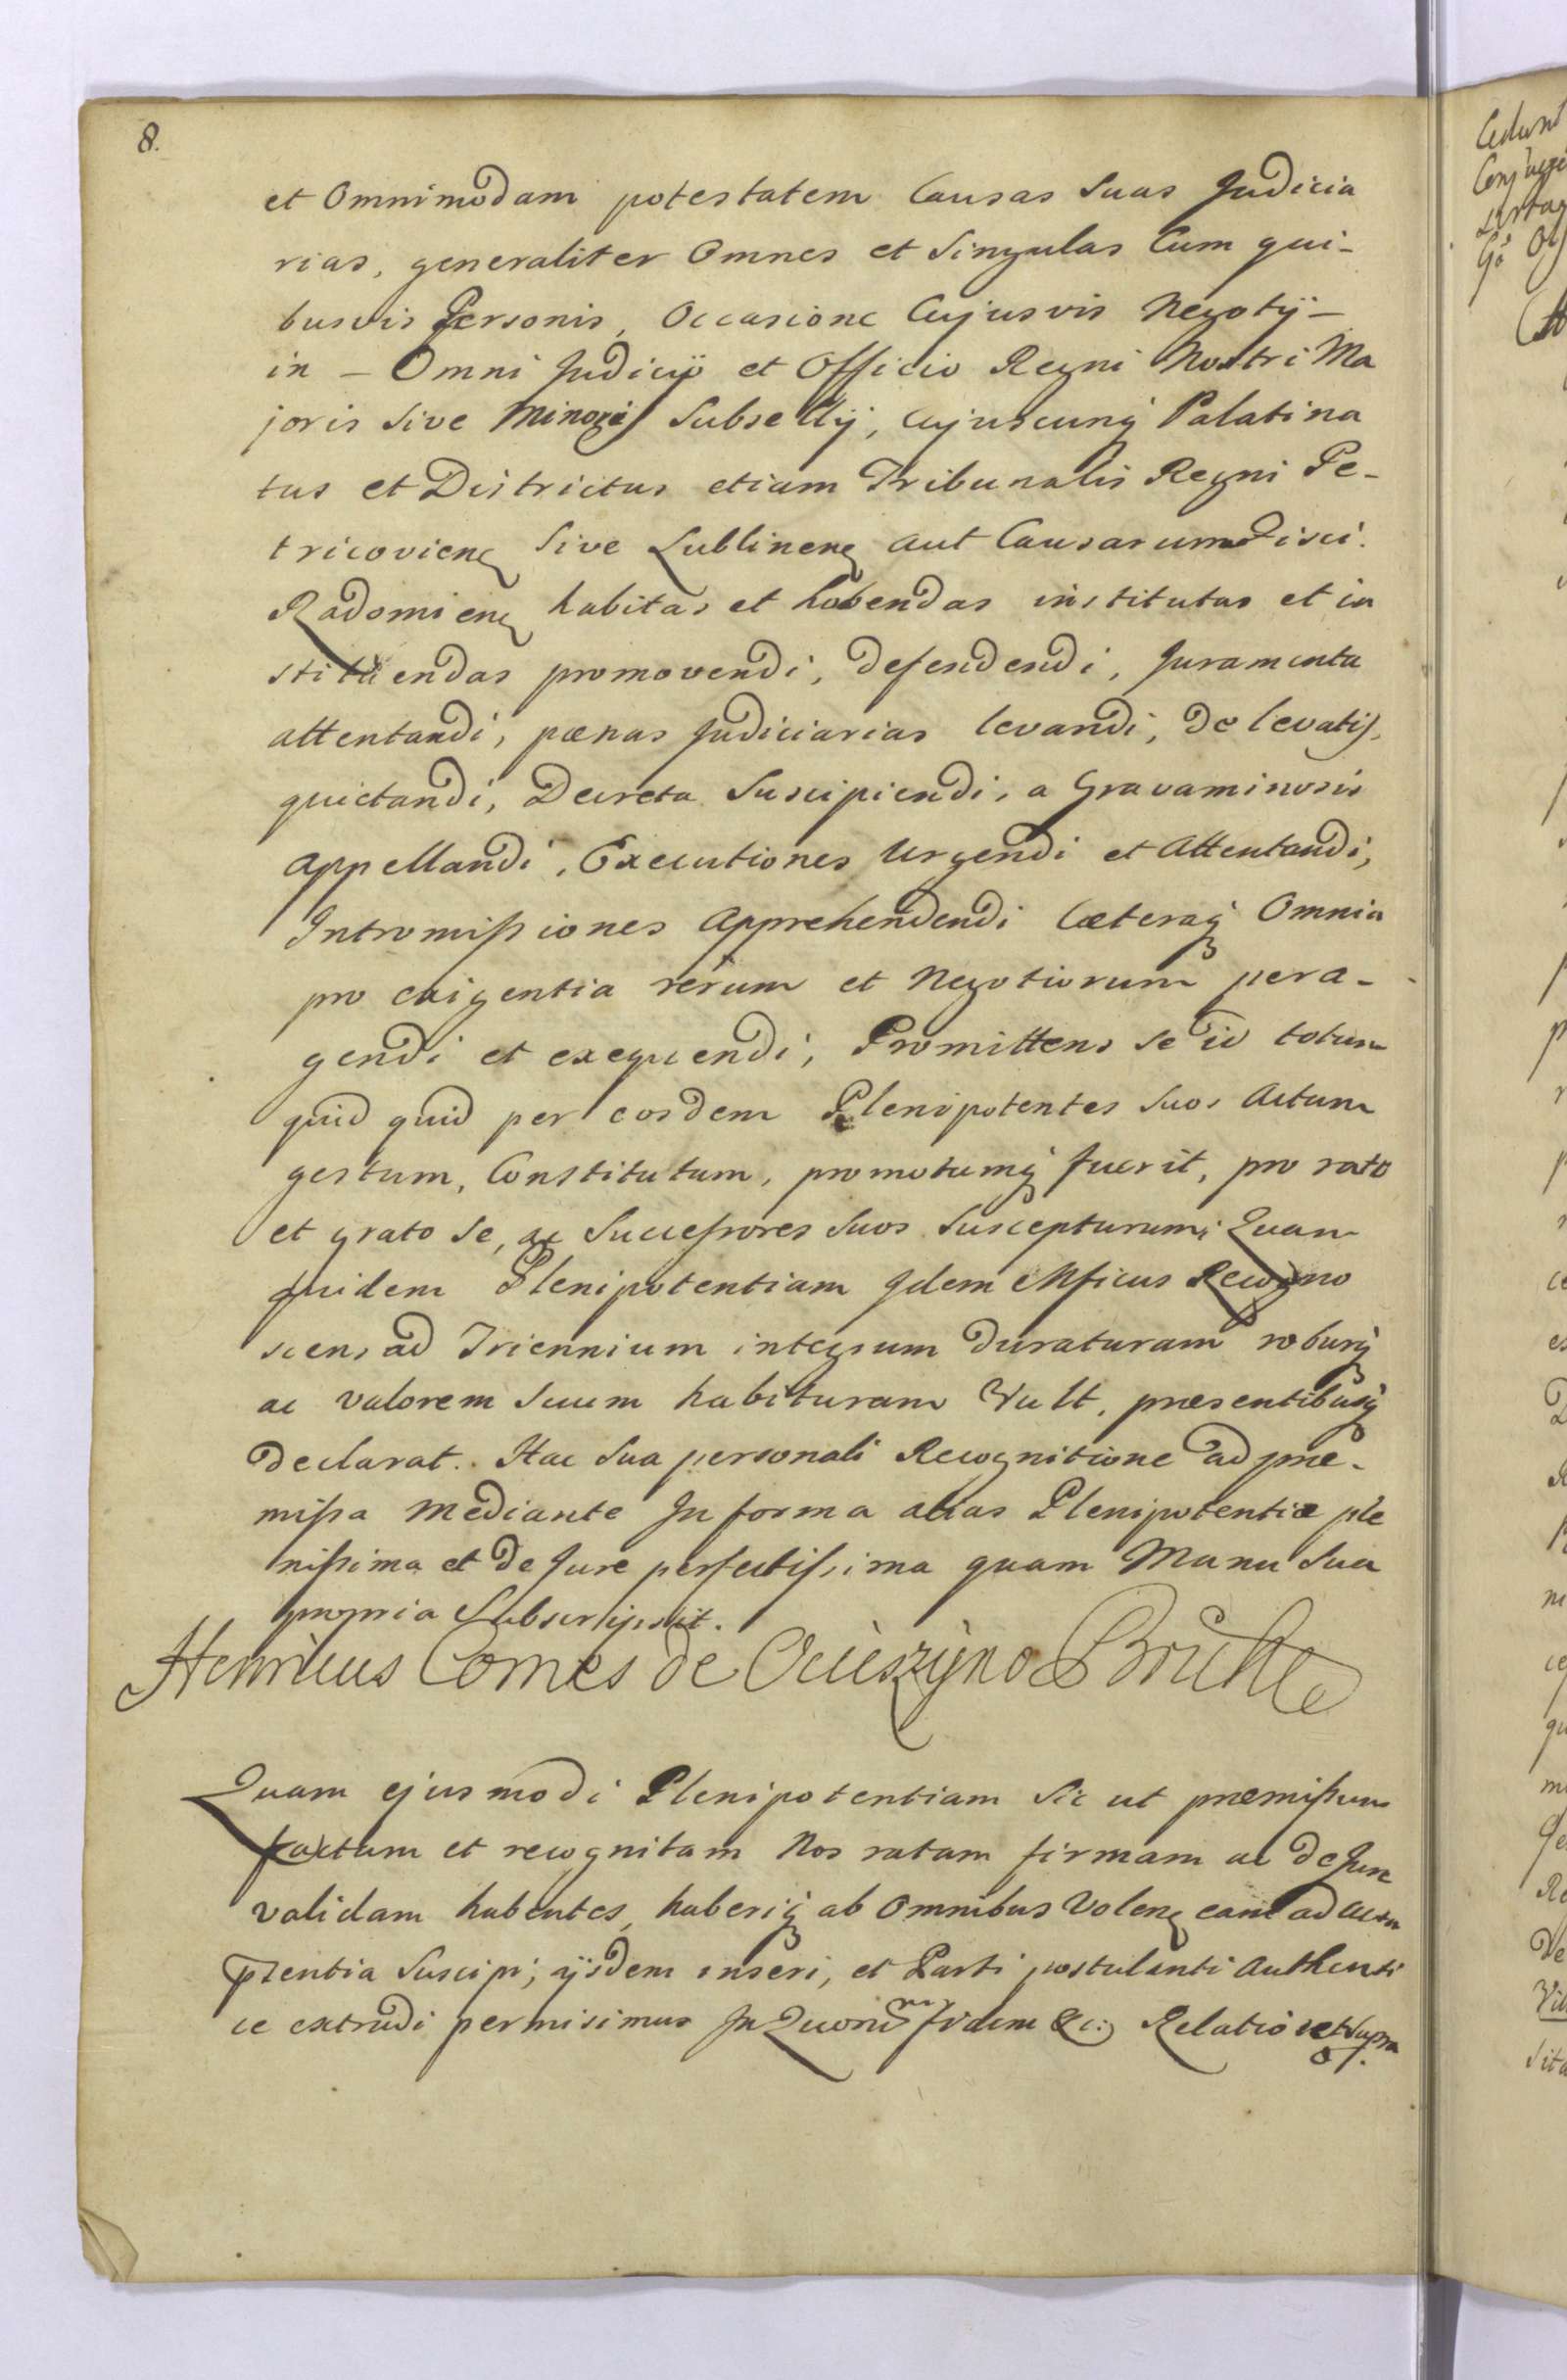 8.
et Omnimodam potestatem Causas Suas Judicia
rias, generaliter Omnes et Singulas Cum qui-
busvis Personis, Occasione Cujusvis Negotÿ -
in - Omni Judicÿo et Officio Regni Nostri Ma
joris Sive Minoris Subsellÿ, cujuscunq Palatina
tus et Districtus etiam Tribunalis Regni Pe-
tricovien Sive Lublinen aut Causarum Fisci.
Radomien habitas et habendas institutas et in
stituendas promovendi, defendendi, Juramenta
attentandi, pœnas Judiciarias levandi, de levatis,
quietandi, Decreta Suscipiendi, a Gravaminosis
appellandi, Executiones Urgendi et Attentandi,
Intromissiones Apprehendendi Cæteraq Omnia
pro exigentia rerum et Negotiorum pera-
gendi et exequendi, Promittens Se id totum
quid quid per eosdem Plenipotentes Suos Actum
gestum, Constitutum, promotumq fuerit, pro rato
et grato Se, ac Successores Suos Suscepturum; Quam
quidem Plenipotentiam Idem Mficus Recogno
scens ad Triennium integrum duraturam roburq
ac valorem Suum habituram Vult, præsentibusq
declarat. Hac Sua personali Recognitione ad præ-
missa mediante In forma alias Plenipotentiæ ple
nissima et de Jure perfectissima quam Manu Sua
propria Subscripsit.
Henricus Comes de Ocieszÿno Brühl
Quam ejusmodi Plenipotentiam Sic ut præmissum
factam et recognitam Nos ratam firmam ac de Jure
validam habentes, haberiq ab Omnibus Volen eam ad Acta
pñentia Suscipi, ÿsdem inseri, et Parti postulanti Authenti
ce extradi permisimus In Quorum fidem &c: Relatio ut Supra